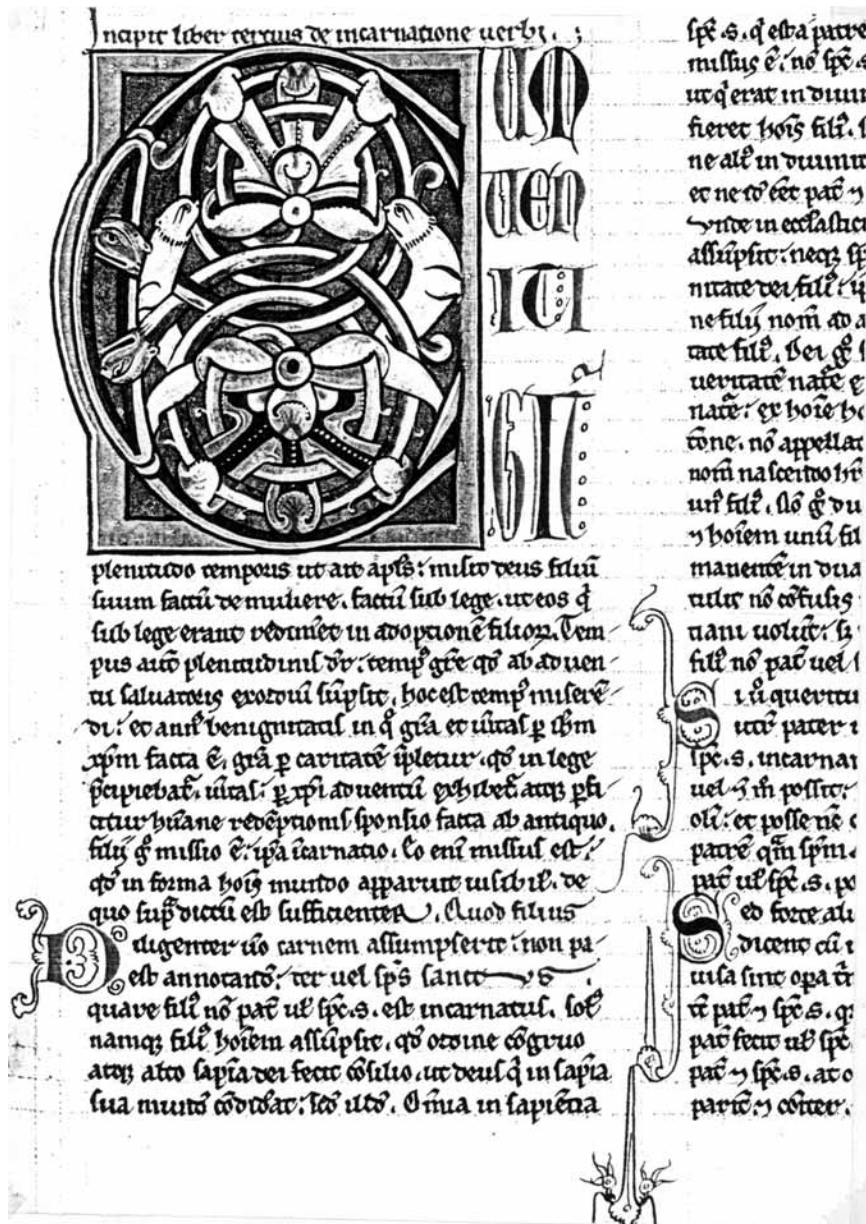 Incipit liber tercius de incarnatione uerbi .
C UM
UEN
ITI
GIT
plenitudo temporis ut ait apl̃s: misit deus filiũ
suum factũ de muliere. factũ sub lege. ut eos q̃
sub lege erant redim̃et in adoptionẽ filioꝝ. Tem
pus autẽ plenitudinis dr̃. temp᷒ gr̃e qd̃ ab aduen
tu saluatoris exordiũ sũpsit. hoc est temp᷒ miserẽ
di: et ann᷒ benignitatis in q̊ gr̃a et ũitas ꝑ ih̃m
xp̃m facta ẽ. gr̃a ꝑ caritatẽ ĩpletur. qd̃ in lege
p̃cipiebat̃. ũitas: ꝑ xp̃i aduentũ exhibet̃ atqꝫ ꝑfi
citur hũane redẽptionis sponsio facta ab antiquo.
filij g̊ missio ẽ: ip̃a ĩcarnatio. Eo enĩ missus est:
qd̃ in forma hoĩs mundo apparuit uisibil̃. de
quo sup̃ dictũ est sufficienter. Quod filius
Diligenter ũo carnem assumpserit: non pa
est annotand̃: ter uel sp̃s sanctus
quare fili᷒ nõ pat̃ ul̃ sp̃c.s. est incarnatus. sol᷒
namqꝫ fili᷒ hoĩem assũpsit. qd̃ ordine cõgruo
atqꝫ alto sapĩa dei fecit cõsilio. ut deus q̃ in sapĩa
sua mund̃ cõdid̃at: Omĩa in sapiẽtia
sp̃c .s. q̃ est a patre
missus ẽ: nõ sp̃c
ut q̃ erat in diuin
fieret hoĩs fili᷒.
ne alt᷒ in diuinit
Vnde in eccl̃astic
assũpsit: neqꝫ
nitate dei fili᷒:
ne filij nom̃ ad a
tate fili᷒. Dei g̊
ueritatẽ nat᷒ e
nat᷒: ex hoĩe ho
tõne. nõ appellat
nom̃ nascendo
un᷒ fili᷒. Nõ g̊ du
⁊ hoĩem unũ fil
manentẽ in dua
tulit nõ cõfusis
tiani uoluit:
fili᷒ nõ pat̃ uel
Si ũ queritu
utr̃ pater
sp̃c.s. incarnar
uel ⁊ m̃ possit:
oli᷒: et posse
patrẽ qm̃ sp̃m.
pat̃ ul̃ sp̃c.s. po
Sed forte ali
dicent cũ i
uisa sint opa tr̃
tẽ pat̃ ⁊ sp̃c.s. q
pat̃ fecit ul̃ sp̃c
pat̃ ⁊ sp̃c.s. at o